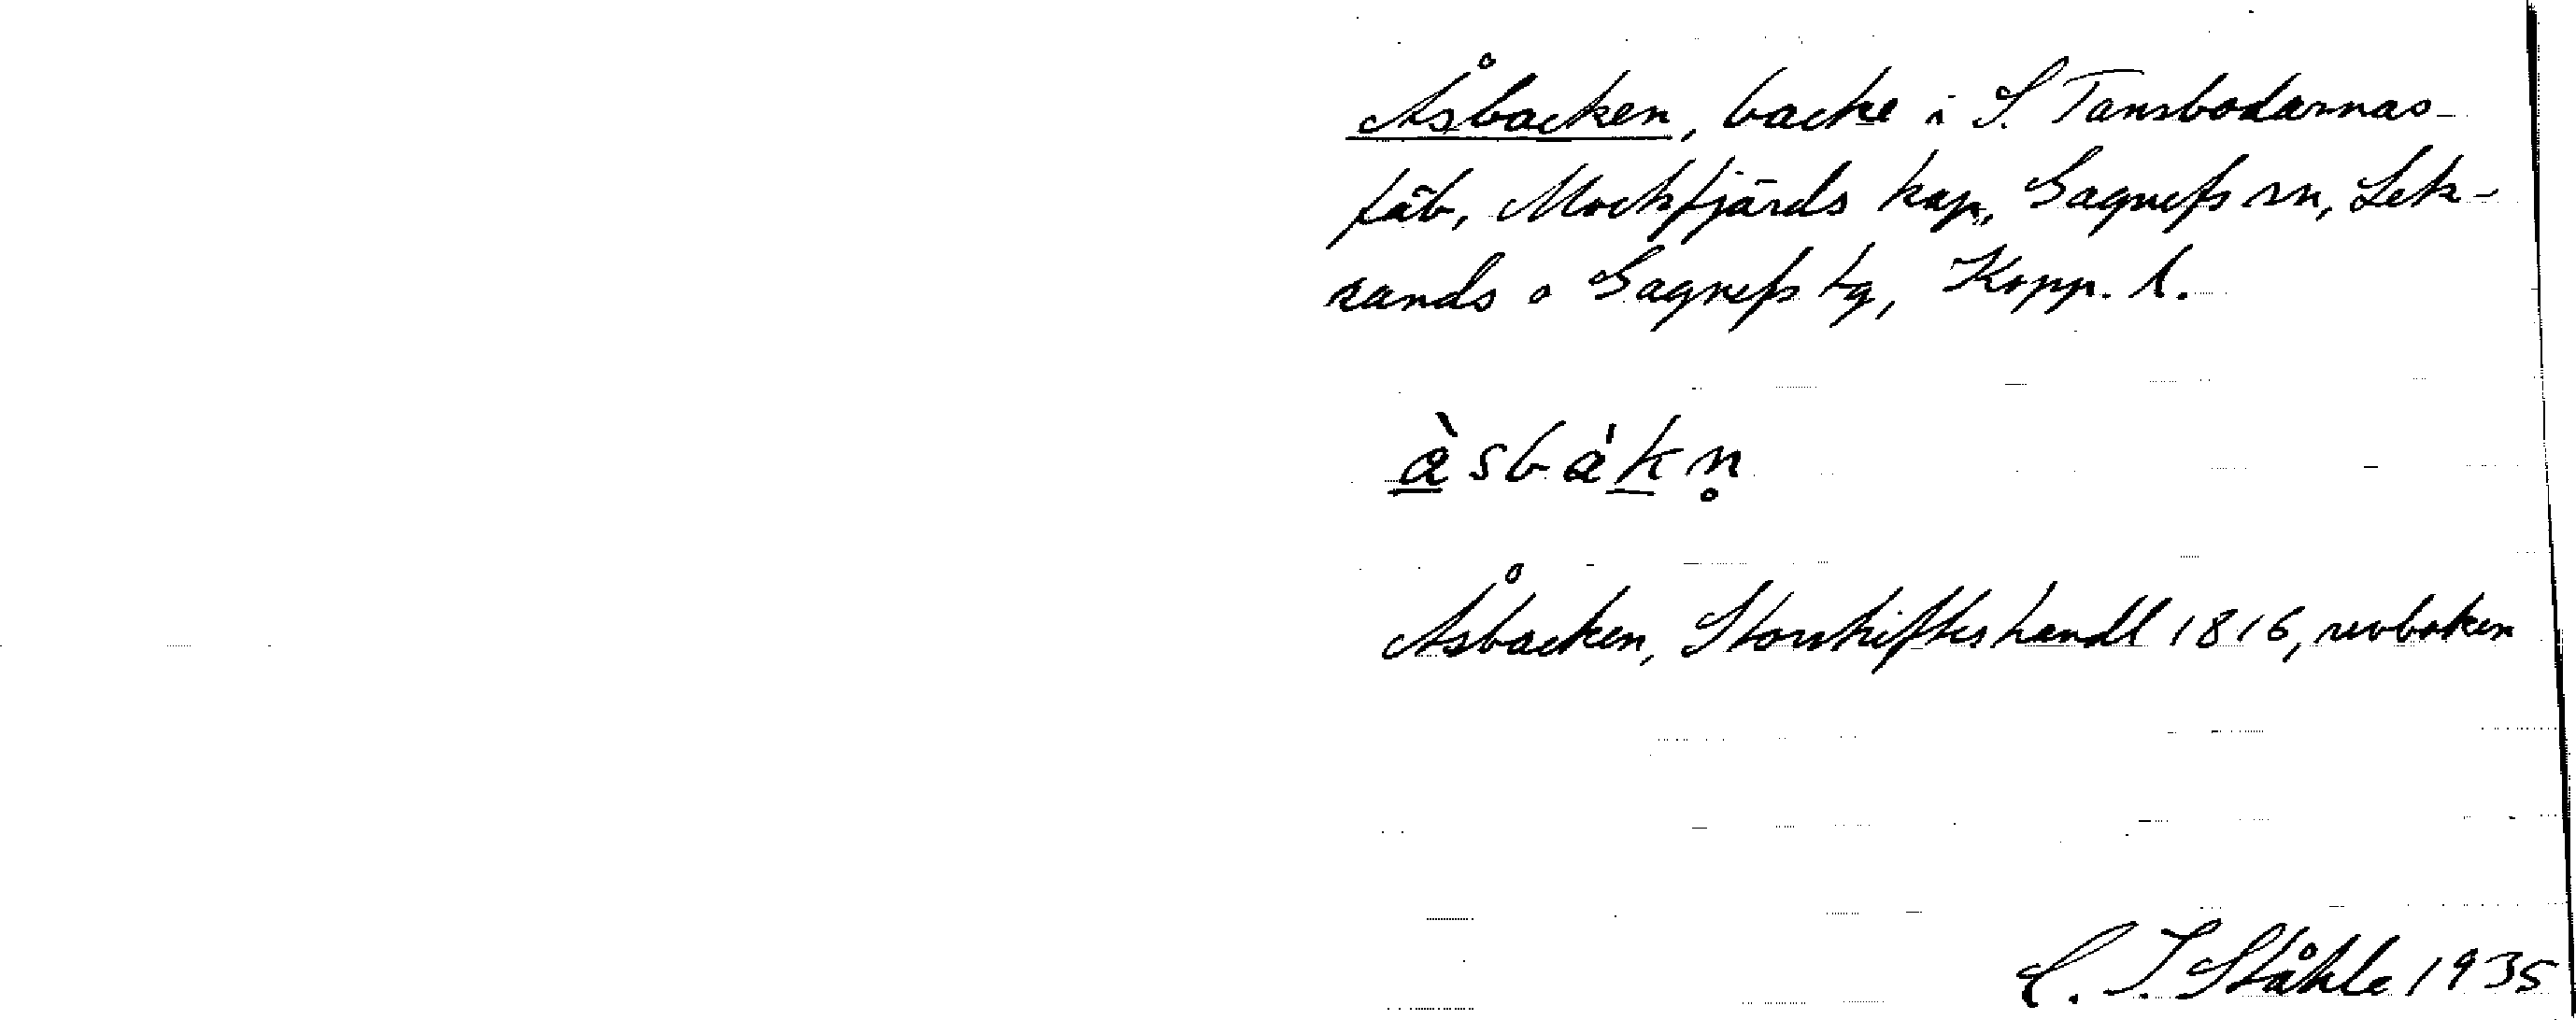 Åsbacken, backe i S. Tansbodarnas
fäb, Mockfjärds kap, Gagnefs sn, Lek-
sands o Gagnefs tg, Kopp. l.
à̠sbák̠n̥
Åsbacken, Storskifteshandl 1816, revboken
C. I. Ståhle 1935